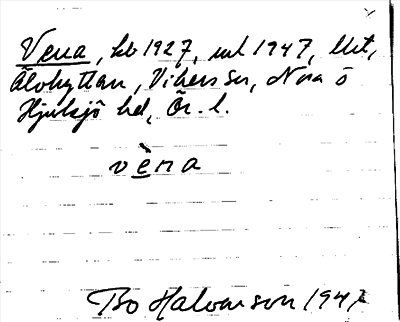 Vena, kb 1927, uul 1947, llit,
Älvhyttan, Vikers sn, Nora o
Hjulsjö hd, Ör. l.
vèna
Bo Halvarson 1947